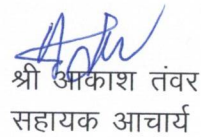 श्री आकाश तंवर
सहायक आचार्य